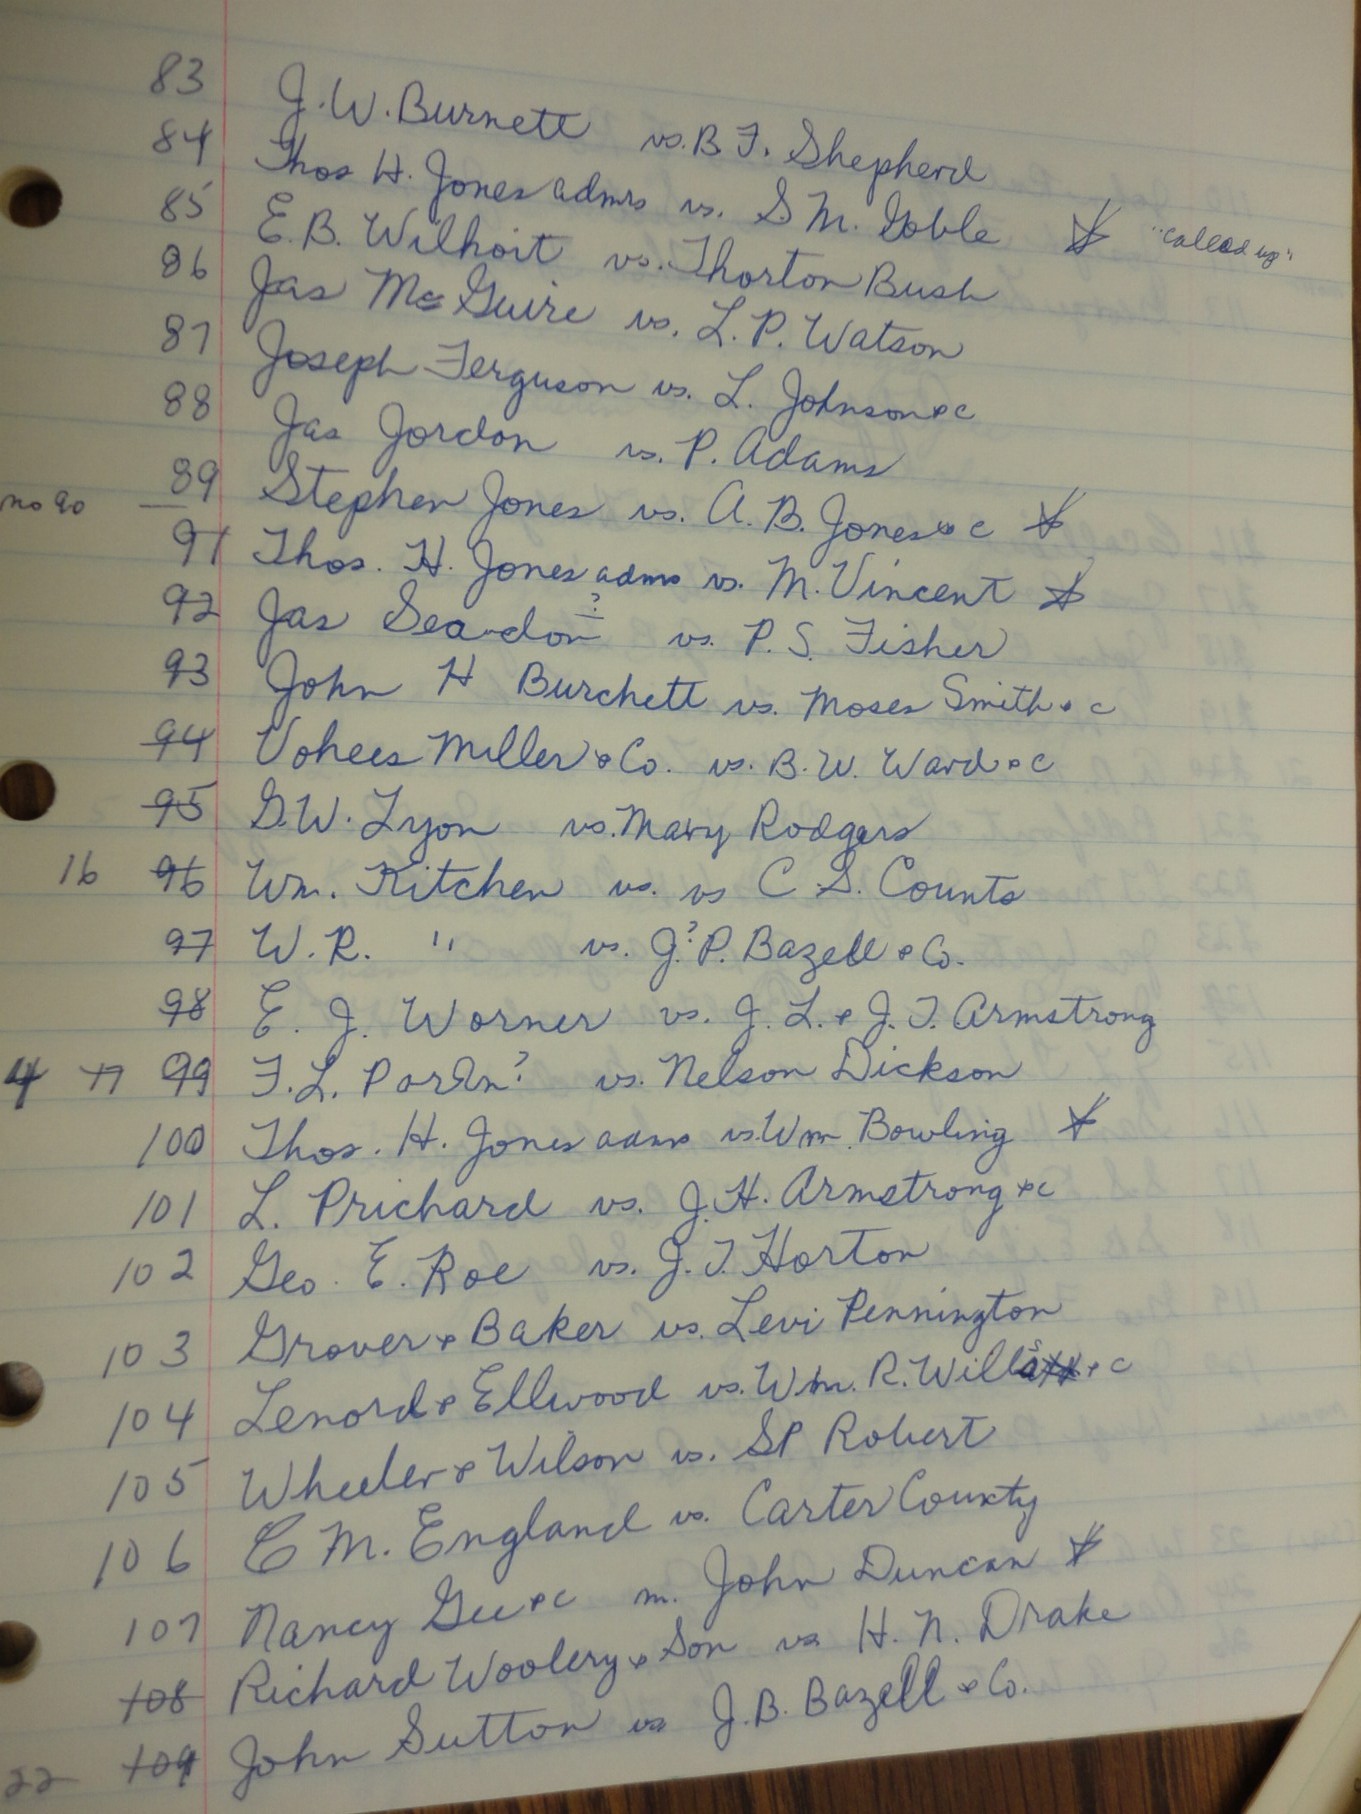 83 J. W. Burnett vs. B. F. Shepherd
84 Thos H. Jones admrs vs. S. M. Goble "called up"
85 E. B. Wilhoit vs. Thorton Bush
86 Jas McGuire vs. L. P. Watson
87 Joseph Ferguson vs. L. Johnson &c
88 Jas Jordon vs. P. Adams
no 90 89 Stephen Jones vs. A. B. Jones &c
91 Thos. H. Jones adms vs. M. Vincent
92 Jas Seadon ? vs. P. S. Fisher
93 John H Burchett vs. Moses Smith & c
94 Vohees Miller & Co. vs. B. W. Ward & c
95 G. W. Lyon vs. Mary Rodgers
16 96 Wm. Kitchen vs. vs C. S. Counts
97 W. R. " vs. J.? P. Bazell & Co.
98 E. J. Worner vs. J. L. & J. T. Armstrong
4 77 99 F. L. ? vs. Nelson Dickson
100 Thos. H. Jones adms vs. Wm Bowling
101 L. Prichard vs. J. H. Armstrong &c
102 Geo. E. Roe vs. J. T. Horton
103 Grover & Baker vs. Levi Pennington
104 Lenord & Ellwood vs. Wm. R. & c
105 Wheeler & Wilson vs. SP Robert
106 C M. England vs. Carter County
107 Nancy Gee &c vs. John Duncan
108 Richard Woolery & Son vs H. N. Drake
22 109 John Sutton vs J. B. Bazell & Co.